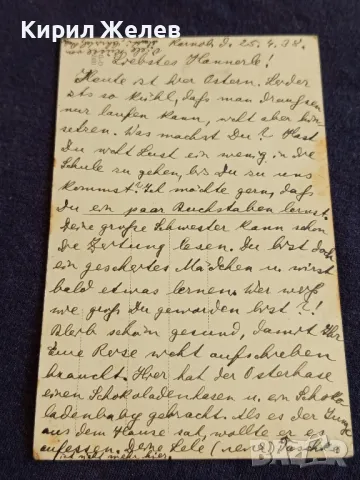 Кирил Желев
Karnob. d. 25. 4. 48.
Liebstes Hannerle!
Heute ist hier Ostern. Leider
ists so kühl, dass man draussen
nur laufen kann, nicht aber hin
setzen. Was machst Du? Hast
Du wohl Lust ein wenig in die
Schule zu gehen, bis Du zu uns
kommst? Ich möchte gern, dass
Du ein paar Buchstaben lernst.
Deine große Schwester kann schon
die Zeitung lesen. Du bist doch
ein gescheites Mädchen u. wirst
bald etwas lernen. Wer weiß
wie groß Du geworden bist?!
Bleib schön gesund, damit Ihr
Eure Reise nicht aufschieben
braucht. Hier hat der Osterhase
einen Schokoladenhasen u. ein Schoko
ladenbaby gebracht. Als es der
aus dem Hause sah, wollte er es
aufessen. Deine Lele (
ist nicht mehr hier.
bazar.bg